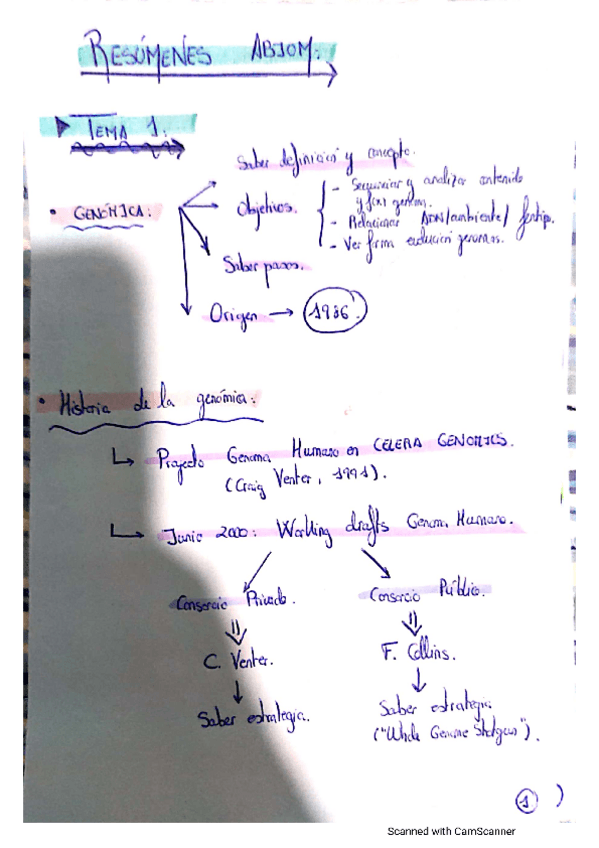 RESÚMENES ABIOM:
TEMA 1:
Saber definición y concepto.
• GENÓMICA:
Objetivos.
- Secuenciar y analizar contenido
y fxn genom.
- Relacionar ADN/ambiente/fenotip.
- Ver forma evolución genomas.
Saber pasos.
Origen → 1986
• Historia de la genómica:
↳ Proyecto Genoma Humano en CELERA GENOMICS.
(Craig Venter, 1991).
↳ Junio 2000: Working drafts Genom. Humano.
Consorcio Privado.
Consorcio Público.
C. Venter.
F. Collins.
Saber estrategia.
Saber estrategia
("Whole Genome Shotgun").
1
Scanned with CamScanner